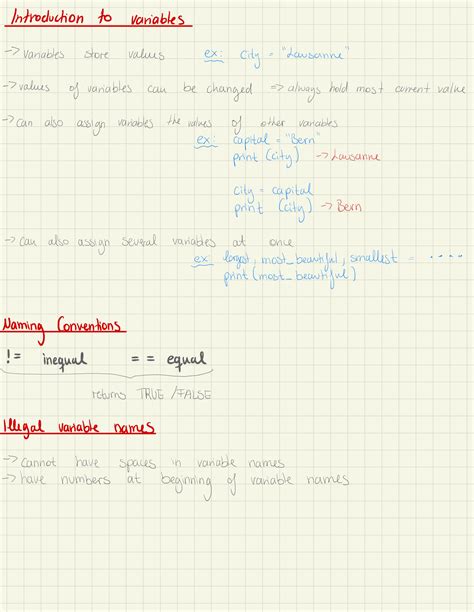 Introduction to variables
-> variables store values ex: city = "Lausanne"
-> values of variables can be changed => always hold most current value
-> can also assign variables the values of other variables
ex: capital = "Bern"
print (city) -> Lausanne
city = capital
print (city) -> Bern
-> can also assign several variables at once
ex: largest, most_beautiful, smallest = ....
print (most_beautiful)
Naming Conventions
!= inequal == equal
returns TRUE /FALSE
Illegal variable names
-> cannot have spaces in variable names
-> have numbers at beginning of variable names